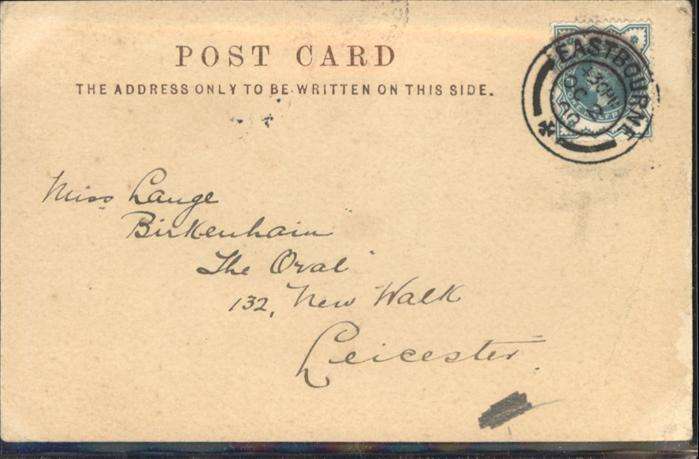 POST CARD
THE ADDRESS ONLY TO BE WRITTEN ON THIS SIDE.
EASTBOURNE
OC 2
Miss Lange
Birkenhain
The Oval
132, New Walk
Leicester.